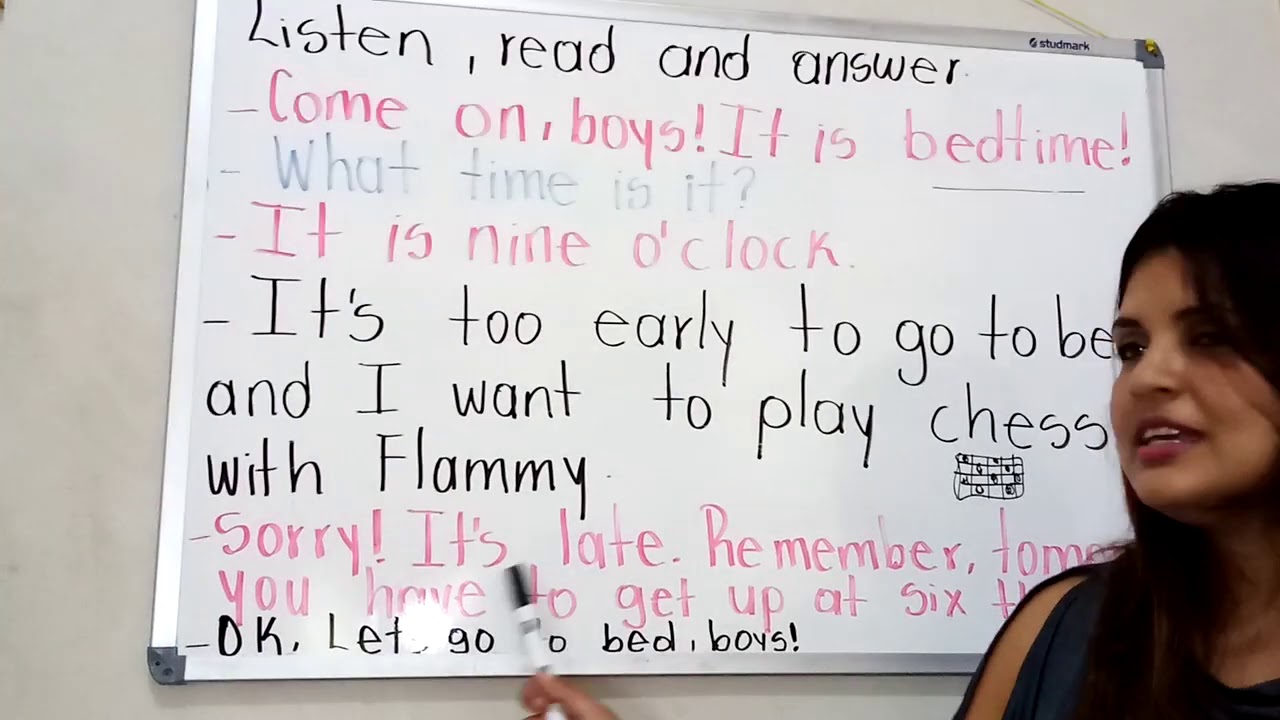 studmark
Listen, read and answer.
- Come on, boys! It is bedtime!
- What time is it?
- It is nine o'clock.
- It's too early to go to
and I want to play chess
with Flammy.
- Sorry! It's late. Remember,
you have to get up at six
- OK, Let go bed, boys!